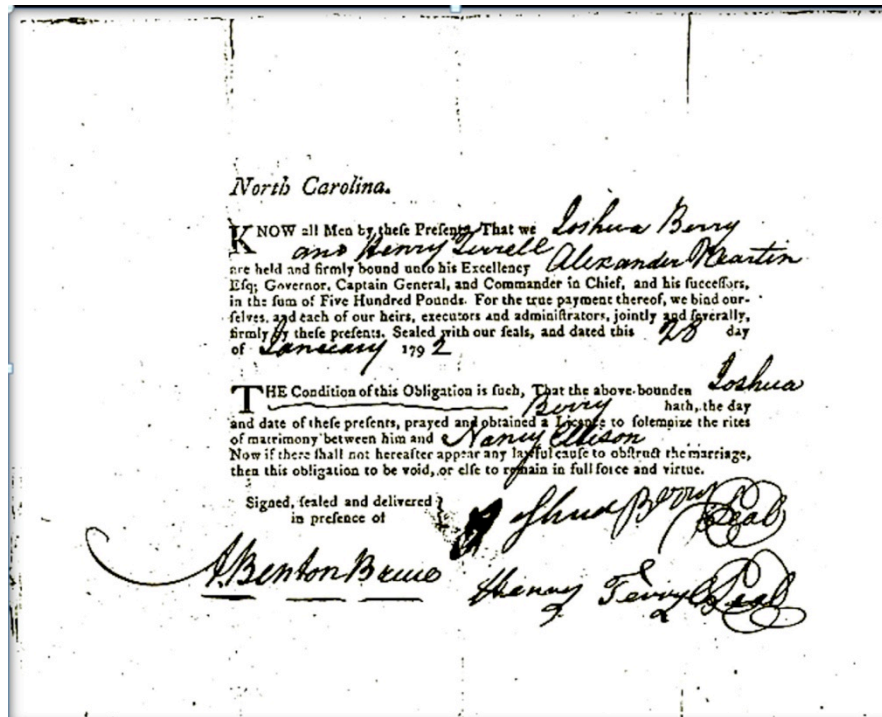 North Carolina.
KNOW all Men by these Presents, That we Joshua Berry
and Henry Terrell
are held and firmly bound unto his Excellency Alexander Martin
Esq; Governor, Captain General, and Commander in Chief, and his successors,
in the sum of Five Hundred Pounds. For the true payment thereof, we bind our-
selves, and each of our heirs, executors and administrators, jointly and severally,
firmly by these presents. Sealed with our seals, and dated this 28 day
of January 1792
THE Condition of this Obligation is such, That the above bounden Joshua
Berry hath, the day
and date of these presents, prayed and obtained a Licence to solemnize the rites
of matrimony between him and Nancy Ellison
Now if there shall not hereafter appear any lawful cause to obstruct the marriage,
then this obligation to be void, or else to remain in full force and virtue.
Signed, sealed and delivered
in presence of
Joshua Berry Seal
A. Benton Bruce
Henry Terryl Seal